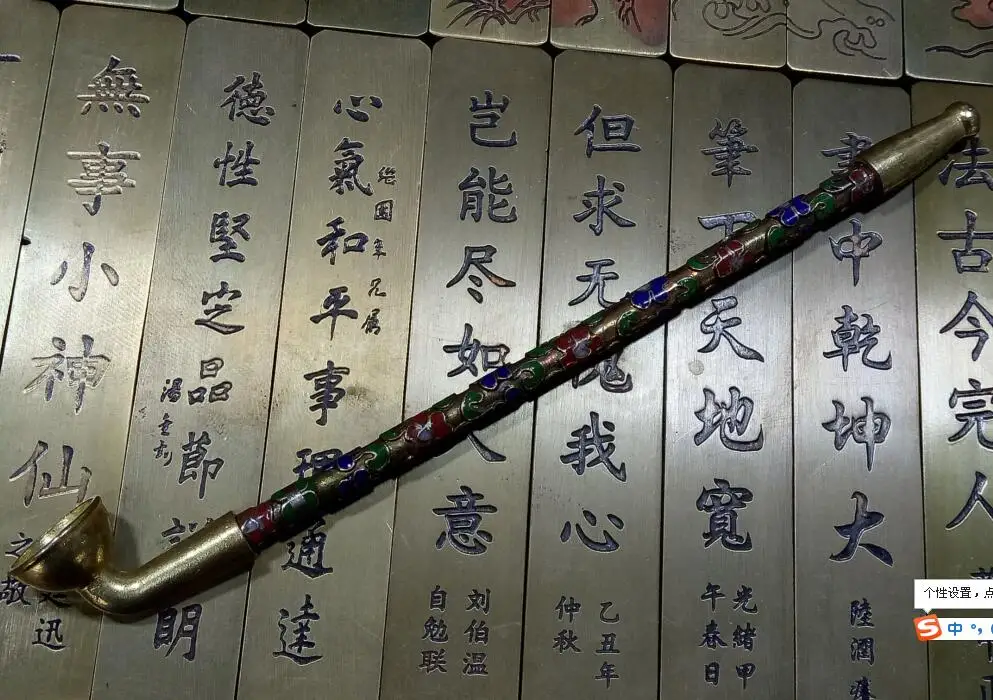 法古今完人
書中乾坤大
陸潤庠
筆下天地寬
光緒甲
午春日
但求无愧我心
乙丑年
仲秋
岂能尽如人意
刘伯温
自勉联
心氣和平事理通達
年兄属
德性堅定品節詳眀
湯金釗
無事小神仙
个性设置，点
中